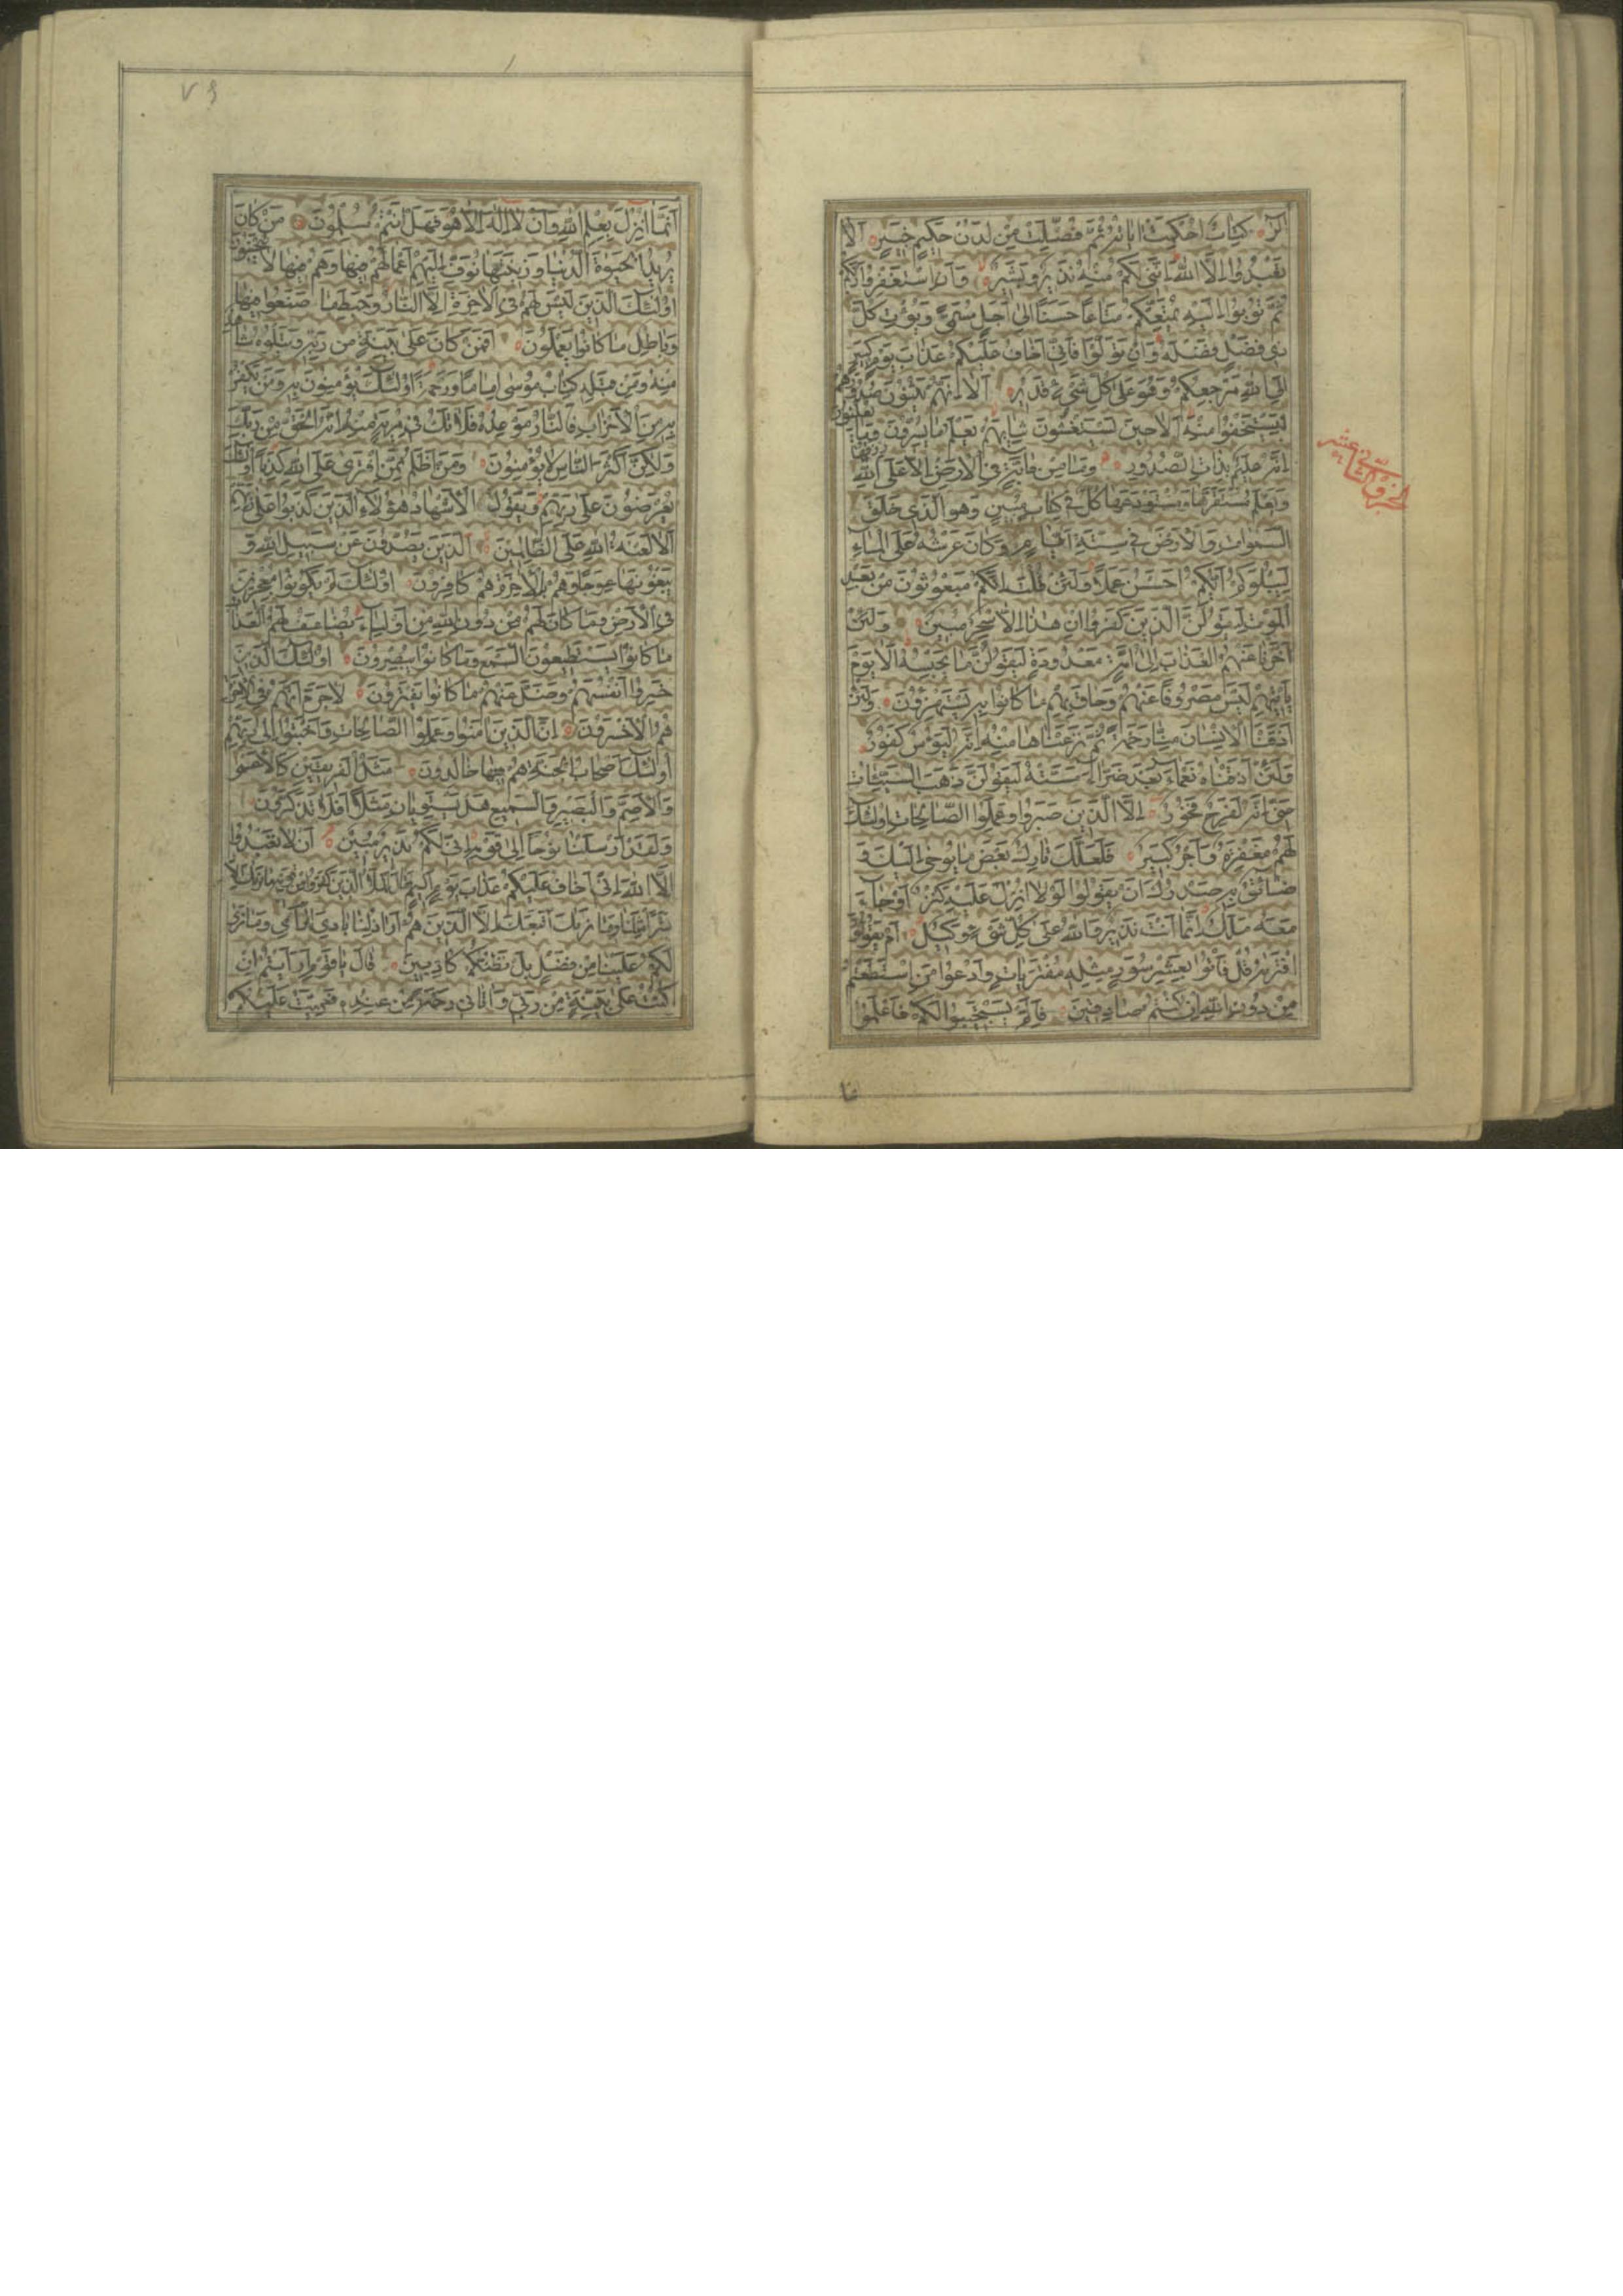 الٓر كِتَابٌ اُحْكِمَتْ اٰيَاتُهُ ثُمَّ فُصِّلَتْ مِنْ لَدُنْ حَكِيمٍ خَبِيرٍ اَلَّا
تَعْبُدُوا اِلَّا اللهَ اِنَّنِي لَكُمْ مِنْهُ نَذِيرٌ وَبَشِيرٌ وَاَنِ اسْتَغْفِرُوا رَبَّكُمْ
ثُمَّ تُوبُوا اِلَيْهِ يُمَتِّعْكُمْ مَتَاعًا حَسَنًا اِلٰى اَجَلٍ مُسَمًّى وَيُؤْتِ كُلَّ
ذِي فَضْلٍ فَضْلَهُ وَاِنْ تَوَلَّوْا فَاِنِّي اَخَافُ عَلَيْكُمْ عَذَابَ يَوْمٍ كَبِيرٍ
اِلَى اللهِ مَرْجِعُكُمْ وَهُوَ عَلٰى كُلِّ شَيْءٍ قَدِيرٌ اَلَا اِنَّهُمْ يَثْنُونَ صُدُورَهُمْ
لِيَسْتَخْفُوا مِنْهُ اَلَا حِينَ يَسْتَغْشُونَ ثِيَابَهُمْ يَعْلَمُ مَا يُسِرُّونَ وَمَا يُعْلِنُونَ
اِنَّهُ عَلِيمٌ بِذَاتِ الصُّدُورِ وَمَا مِنْ دَابَّةٍ فِي الْاَرْضِ اِلَّا عَلَى اللهِ رِزْقُهَا
وَيَعْلَمُ مُسْتَقَرَّهَا وَمُسْتَوْدَعَهَا كُلٌّ فِي كِتَابٍ مُبِينٍ وَهُوَ الَّذِي خَلَقَ
السَّمٰوَاتِ وَالْاَرْضَ فِي سِتَّةِ اَيَّامٍ وَكَانَ عَرْشُهُ عَلَى الْمَاءِ
لِيَبْلُوَكُمْ اَيُّكُمْ اَحْسَنُ عَمَلًا وَلَئِنْ قُلْتَ اِنَّكُمْ مَبْعُوثُونَ مِنْ بَعْدِ
الْمَوْتِ لَيَقُولَنَّ الَّذِينَ كَفَرُوا اِنْ هٰذَا اِلَّا سِحْرٌ مُبِينٌ وَلَئِنْ
اَخَّرْنَا عَنْهُمُ الْعَذَابَ اِلٰى اُمَّةٍ مَعْدُودَةٍ لَيَقُولُنَّ مَا يَحْبِسُهُ اَلَا يَوْمَ
يَأْتِيهِمْ لَيْسَ مَصْرُوفًا عَنْهُمْ وَحَاقَ بِهِمْ مَا كَانُوا بِهِ يَسْتَهْزِؤُنَ وَلَئِنْ
اَذَقْنَا الْاِنْسَانَ مِنَّا رَحْمَةً ثُمَّ نَزَعْنَاهَا مِنْهُ اِنَّهُ لَيَؤُسٌ كَفُورٌ
وَلَئِنْ اَذَقْنَاهُ نَعْمَاءَ بَعْدَ ضَرَّاءَ مَسَّتْهُ لَيَقُولَنَّ ذَهَبَ السَّيِّئَاتُ
عَنِّي اِنَّهُ لَفَرِحٌ فَخُورٌ اِلَّا الَّذِينَ صَبَرُوا وَعَمِلُوا الصَّالِحَاتِ اُولٰئِكَ
لَهُمْ مَغْفِرَةٌ وَاَجْرٌ كَبِيرٌ فَلَعَلَّكَ تَارِكٌ بَعْضَ مَا يُوحٰى اِلَيْكَ وَ
ضَائِقٌ بِهِ صَدْرُكَ اَنْ يَقُولُوا لَوْلَا اُنْزِلَ عَلَيْهِ كَنْزٌ اَوْ جَاءَ
مَعَهُ مَلَكٌ اِنَّمَا اَنْتَ نَذِيرٌ وَاللهُ عَلٰى كُلِّ شَيْءٍ وَكِيلٌ اَمْ يَقُولُونَ
افْتَرٰيهُ قُلْ فَأْتُوا بِعَشْرِ سُوَرٍ مِثْلِهِ مُفْتَرَيَاتٍ وَادْعُوا مَنِ اسْتَطَعْتُمْ
مِنْ دُونِ اللهِ اِنْ كُنْتُمْ صَادِقِينَ فَاِلَّمْ يَسْتَجِيبُوا لَكُمْ فَاعْلَمُوا
الجزو الثاني عشر
اَنَّمَا اُنْزِلَ بِعِلْمِ اللهِ وَاَنْ لَا اِلٰهَ اِلَّا هُوَ فَهَلْ اَنْتُمْ مُسْلِمُونَ مَنْ كَانَ
يُرِيدُ الْحَيٰوةَ الدُّنْيَا وَزِينَتَهَا نُوَفِّ اِلَيْهِمْ اَعْمَالَهُمْ فِيهَا وَهُمْ فِيهَا لَا يُبْخَسُونَ
اُولٰئِكَ الَّذِينَ لَيْسَ لَهُمْ فِي الْاٰخِرَةِ اِلَّا النَّارُ وَحَبِطَ مَا صَنَعُوا فِيهَا
وَبَاطِلٌ مَا كَانُوا يَعْمَلُونَ اَفَمَنْ كَانَ عَلٰى بَيِّنَةٍ مِنْ رَبِّهِ وَيَتْلُوهُ شَاهِدٌ
مِنْهُ وَمِنْ قَبْلِهِ كِتَابُ مُوسٰى اِمَامًا وَرَحْمَةً اُولٰئِكَ يُؤْمِنُونَ بِهِ وَمَنْ يَكْفُرْ
بِهِ مِنَ الْاَحْزَابِ فَالنَّارُ مَوْعِدُهُ فَلَا تَكُ فِي مِرْيَةٍ مِنْهُ اِنَّهُ الْحَقُّ مِنْ رَبِّكَ
وَلٰكِنَّ اَكْثَرَ النَّاسِ لَا يُؤْمِنُونَ وَمَنْ اَظْلَمُ مِمَّنِ افْتَرٰى عَلَى اللهِ كَذِبًا اُولٰئِكَ
يُعْرَضُونَ عَلٰى رَبِّهِمْ وَيَقُولُ الْاَشْهَادُ هٰؤُلَاءِ الَّذِينَ كَذَبُوا عَلٰى رَبِّهِمْ
اَلَا لَعْنَةُ اللهِ عَلَى الظَّالِمِينَ اَلَّذِينَ يَصُدُّونَ عَنْ سَبِيلِ اللهِ وَ
يَبْغُونَهَا عِوَجًا وَهُمْ بِالْاٰخِرَةِ هُمْ كَافِرُونَ اُولٰئِكَ لَمْ يَكُونُوا مُعْجِزِينَ
فِي الْاَرْضِ وَمَا كَانَ لَهُمْ مِنْ دُونِ اللهِ مِنْ اَوْلِيَاءَ يُضَاعَفُ لَهُمُ الْعَذَابُ
مَا كَانُوا يَسْتَطِيعُونَ السَّمْعَ وَمَا كَانُوا يُبْصِرُونَ اُولٰئِكَ الَّذِينَ
خَسِرُوا اَنْفُسَهُمْ وَضَلَّ عَنْهُمْ مَا كَانُوا يَفْتَرُونَ لَا جَرَمَ اَنَّهُمْ فِي الْاٰخِرَةِ
هُمُ الْاَخْسَرُونَ اِنَّ الَّذِينَ اٰمَنُوا وَعَمِلُوا الصَّالِحَاتِ وَاَخْبَتُوا اِلٰى رَبِّهِمْ
اُولٰئِكَ اَصْحَابُ الْجَنَّةِ هُمْ فِيهَا خَالِدُونَ مَثَلُ الْفَرِيقَيْنِ كَالْاَعْمٰى
وَالْاَصَمِّ وَالْبَصِيرِ وَالسَّمِيعِ هَلْ يَسْتَوِيَانِ مَثَلًا اَفَلَا تَذَكَّرُونَ
وَلَقَدْ اَرْسَلْنَا نُوحًا اِلٰى قَوْمِهِ اِنِّي لَكُمْ نَذِيرٌ مُبِينٌ اَنْ لَا تَعْبُدُوا
اِلَّا اللهَ اِنِّي اَخَافُ عَلَيْكُمْ عَذَابَ يَوْمٍ اَلِيمٍ فَقَالَ الْمَلَأُ الَّذِينَ كَفَرُوا مِنْ قَوْمِهِ مَا نَرٰيكَ اِلَّا
بَشَرًا مِثْلَنَا وَمَا نَرٰيكَ اتَّبَعَكَ اِلَّا الَّذِينَ هُمْ اَرَاذِلُنَا بَادِيَ الرَّأْيِ وَمَا نَرٰى
لَكُمْ عَلَيْنَا مِنْ فَضْلٍ بَلْ نَظُنُّكُمْ كَاذِبِينَ قَالَ يَا قَوْمِ اَرَاَيْتُمْ اِنْ
كُنْتُ عَلٰى بَيِّنَةٍ مِنْ رَبِّي وَاٰتَانِي رَحْمَةً مِنْ عِنْدِهِ فَعُمِّيَتْ عَلَيْكُمْ